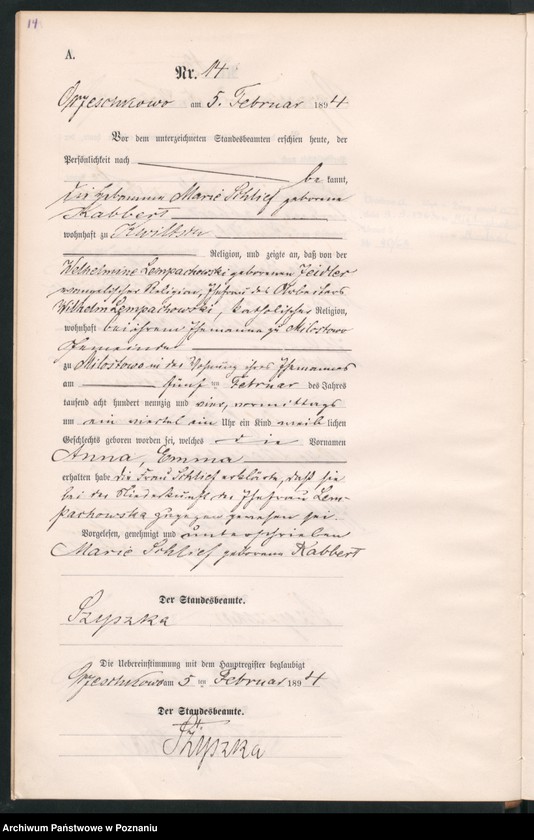 14
A.
Nr. 14
Orzeschkowo am 5. Februar 1894
Vor dem unterzeichneten Standesbeamten erschien heute, der
Persönlichkeit nach
be kannt,
die Hebamme Marie Schlief geborene
Kabbert
wohnhaft zu Kwiltsch
Religion, und zeigte an, daß von der
Wilhelmine Lempachowski geborenen Zeidler
evangelischer Religion, Ehefrau des Arbeiters
Wilhelm Lempachowski, katholischer Religion,
wohnhaft bei ihrem Ehemanne zu Milostowo
Gemeinde
zu Milostowo in der Wohnung ihres Ehemannes
am fünf ten Februar des Jahres
tausend acht hundert neunzig und vier, vormittags
um ein viertel ein Uhr ein Kind weib lichen
Geschlechts geboren worden sei, welches die Vornamen
Anna, Emma
erhalten habe die Frau Schlief erklärte, daß sie
bei der Niederkunft der Ehefrau Lem-
pachowska zugegen gewesen sei.
Vorgelesen, genehmigt und unterschrieben
Marie Schlief geborene Kabbert
Der Standesbeamte.
Szyszka
Die Uebereinstimmung mit dem Hauptregister beglaubigt
Orzeschkowo am 5 ten Februar 1894
Der Standesbeamte.
Szyszka
Archiwum Państwowe w Poznaniu